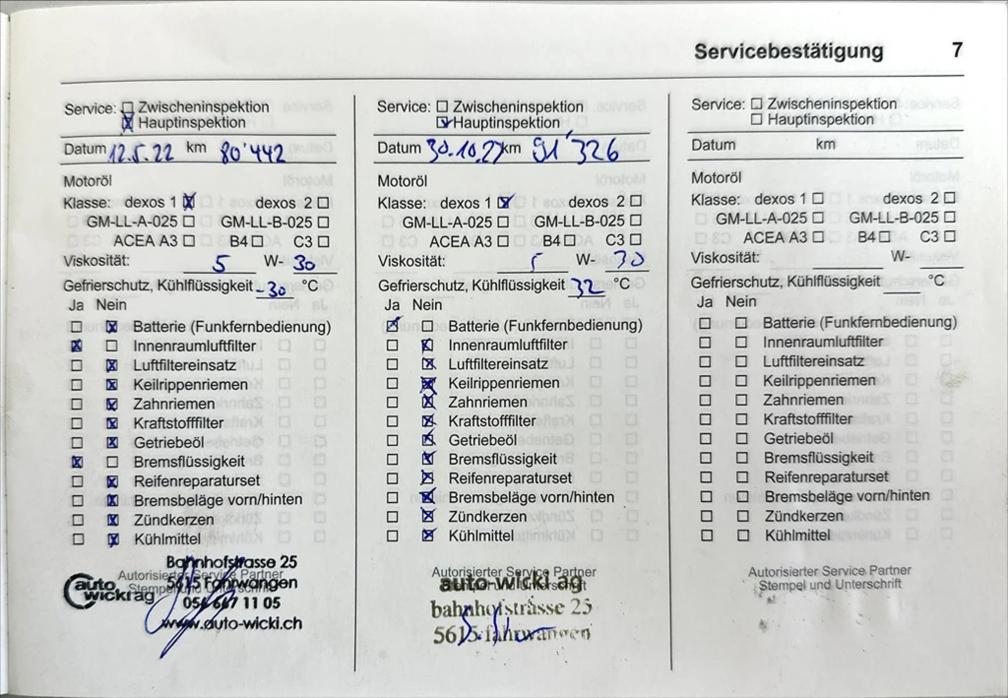 Servicebestätigung 7
Service: Zwischeninspektion
Hauptinspektion
Datum 12.5.22 km 80'442
Motoröl
Klasse: dexos 1 dexos 2
GM-LL-A-025 GM-LL-B-025
ACEA A3 B4 C3
Viskosität: 5 W- 30
Gefrierschutz, Kühlflüssigkeit -30 °C
Ja Nein
Batterie (Funkfernbedienung)
Innenraumluftfilter
Luftfiltereinsatz
Keilrippenriemen
Zahnriemen
Kraftstofffilter
Getriebeöl
Bremsflüssigkeit
Reifenreparaturset
Bremsbeläge vorn/hinten
Zündkerzen
Kühlmittel
Autorisierter Service Partner
Stempel und Unterschrift
auto wicki ag
Bahnhofstrasse 25
5615 Fahrwangen
056 667 11 05
www.auto-wicki.ch
Service: Zwischeninspektion
Hauptinspektion
Datum 30.10.2 km 91'326
Motoröl
Klasse: dexos 1 dexos 2
GM-LL-A-025 GM-LL-B-025
ACEA A3 B4 C3
Viskosität: 5 W- 30
Gefrierschutz, Kühlflüssigkeit 32 °C
Ja Nein
Batterie (Funkfernbedienung)
Innenraumluftfilter
Luftfiltereinsatz
Keilrippenriemen
Zahnriemen
Kraftstofffilter
Getriebeöl
Bremsflüssigkeit
Reifenreparaturset
Bremsbeläge vorn/hinten
Zündkerzen
Kühlmittel
Autorisierter Service Partner
Stempel und Unterschrift
auto-wicki ag
bahnhofstrasse 25
5615 fahrwangen
Service: Zwischeninspektion
Hauptinspektion
Datum km
Motoröl
Klasse: dexos 1 dexos 2
GM-LL-A-025 GM-LL-B-025
ACEA A3 B4 C3
Viskosität: W-
Gefrierschutz, Kühlflüssigkeit °C
Ja Nein
Batterie (Funkfernbedienung)
Innenraumluftfilter
Luftfiltereinsatz
Keilrippenriemen
Zahnriemen
Kraftstofffilter
Getriebeöl
Bremsflüssigkeit
Reifenreparaturset
Bremsbeläge vorn/hinten
Zündkerzen
Kühlmittel
Autorisierter Service Partner
Stempel und Unterschrift